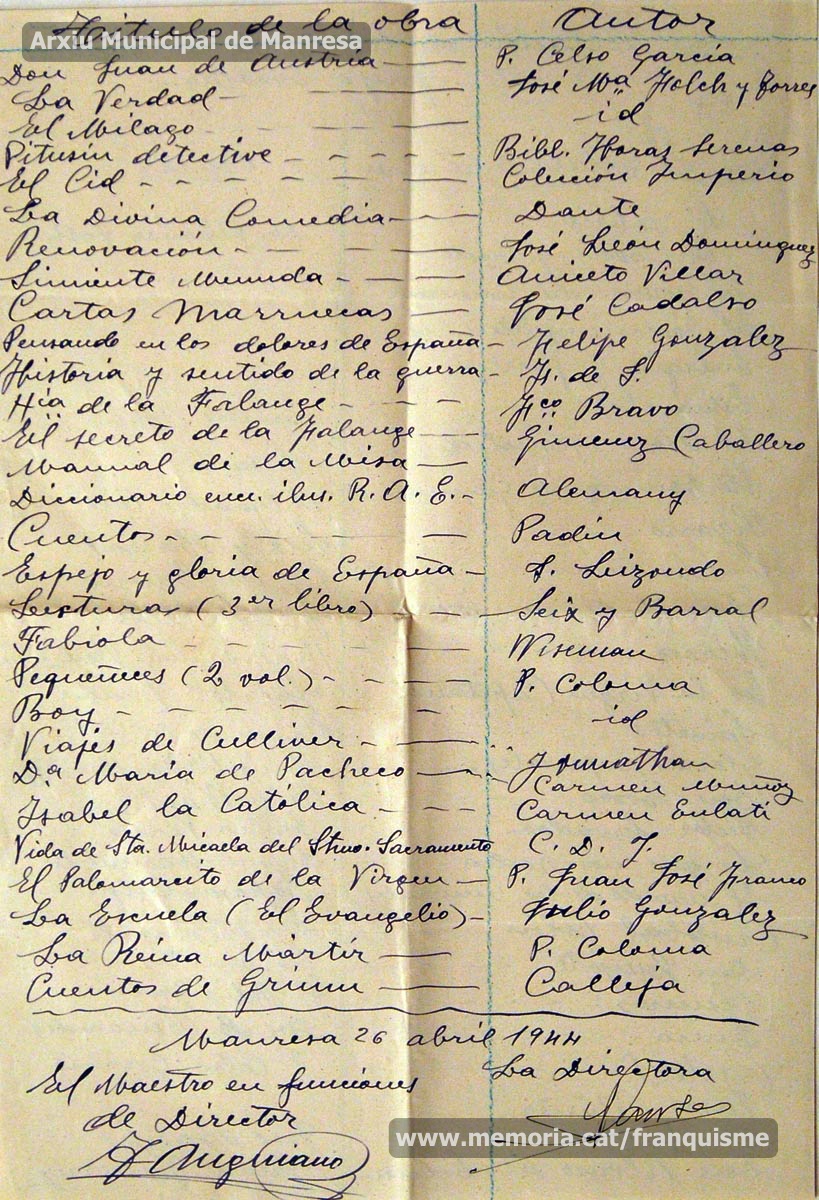 Título de la obra Autor
Arxiu Municipal de Manresa
Don Juan de Austria - P. Celso García
La Verdad - José Mª Folch y Torres
El Milago - id
Pitusín detective - Bibl. Horas Serenas
El Cid - Colección Imperio
La Divina Comedia - Dante
Renovación - José León Domínguez
Simiente Menuda - Aniceto Villar
Cartas Marruecas - José Cadalso
Pensando en los dolores de España - Felipe Gonzalez
Historia y sentido de la guerra - H. de S.
Hia de la Falange - Fco Bravo
El secreto de la Falange - Gimenez Caballero
Manual de la Misa
Diccionario enc. ilus. R. A. E. - Alemany
Cuentos - Padín
Espejo y gloria de España - S. Lizondo
Lecturas (3er libro) - Seix y Barral
Fabiola - Wiseman
Pequeñeces (2 vol.) - P. Coloma
Boy - id
Viajes de Culliver - Jonnathan
Dª María de Pacheco - Carmen Muñoz
Isabel la Católica - Carmen Eulati
Vida de Sta. Micaela del Stmo. Sacramento C. D. J.
El Palomarcito de la Virgen - P. Juan José Franco
La Escuela (El Evangelio) - Julio Gonzalez
La Reina Mártir - P. Coloma
Cuentos de Grimm - Calleja
Manresa 26 abril 1944
El Maestro en funciones La Directora
de Director
F Anguiano
www.memoria.cat/franquisme